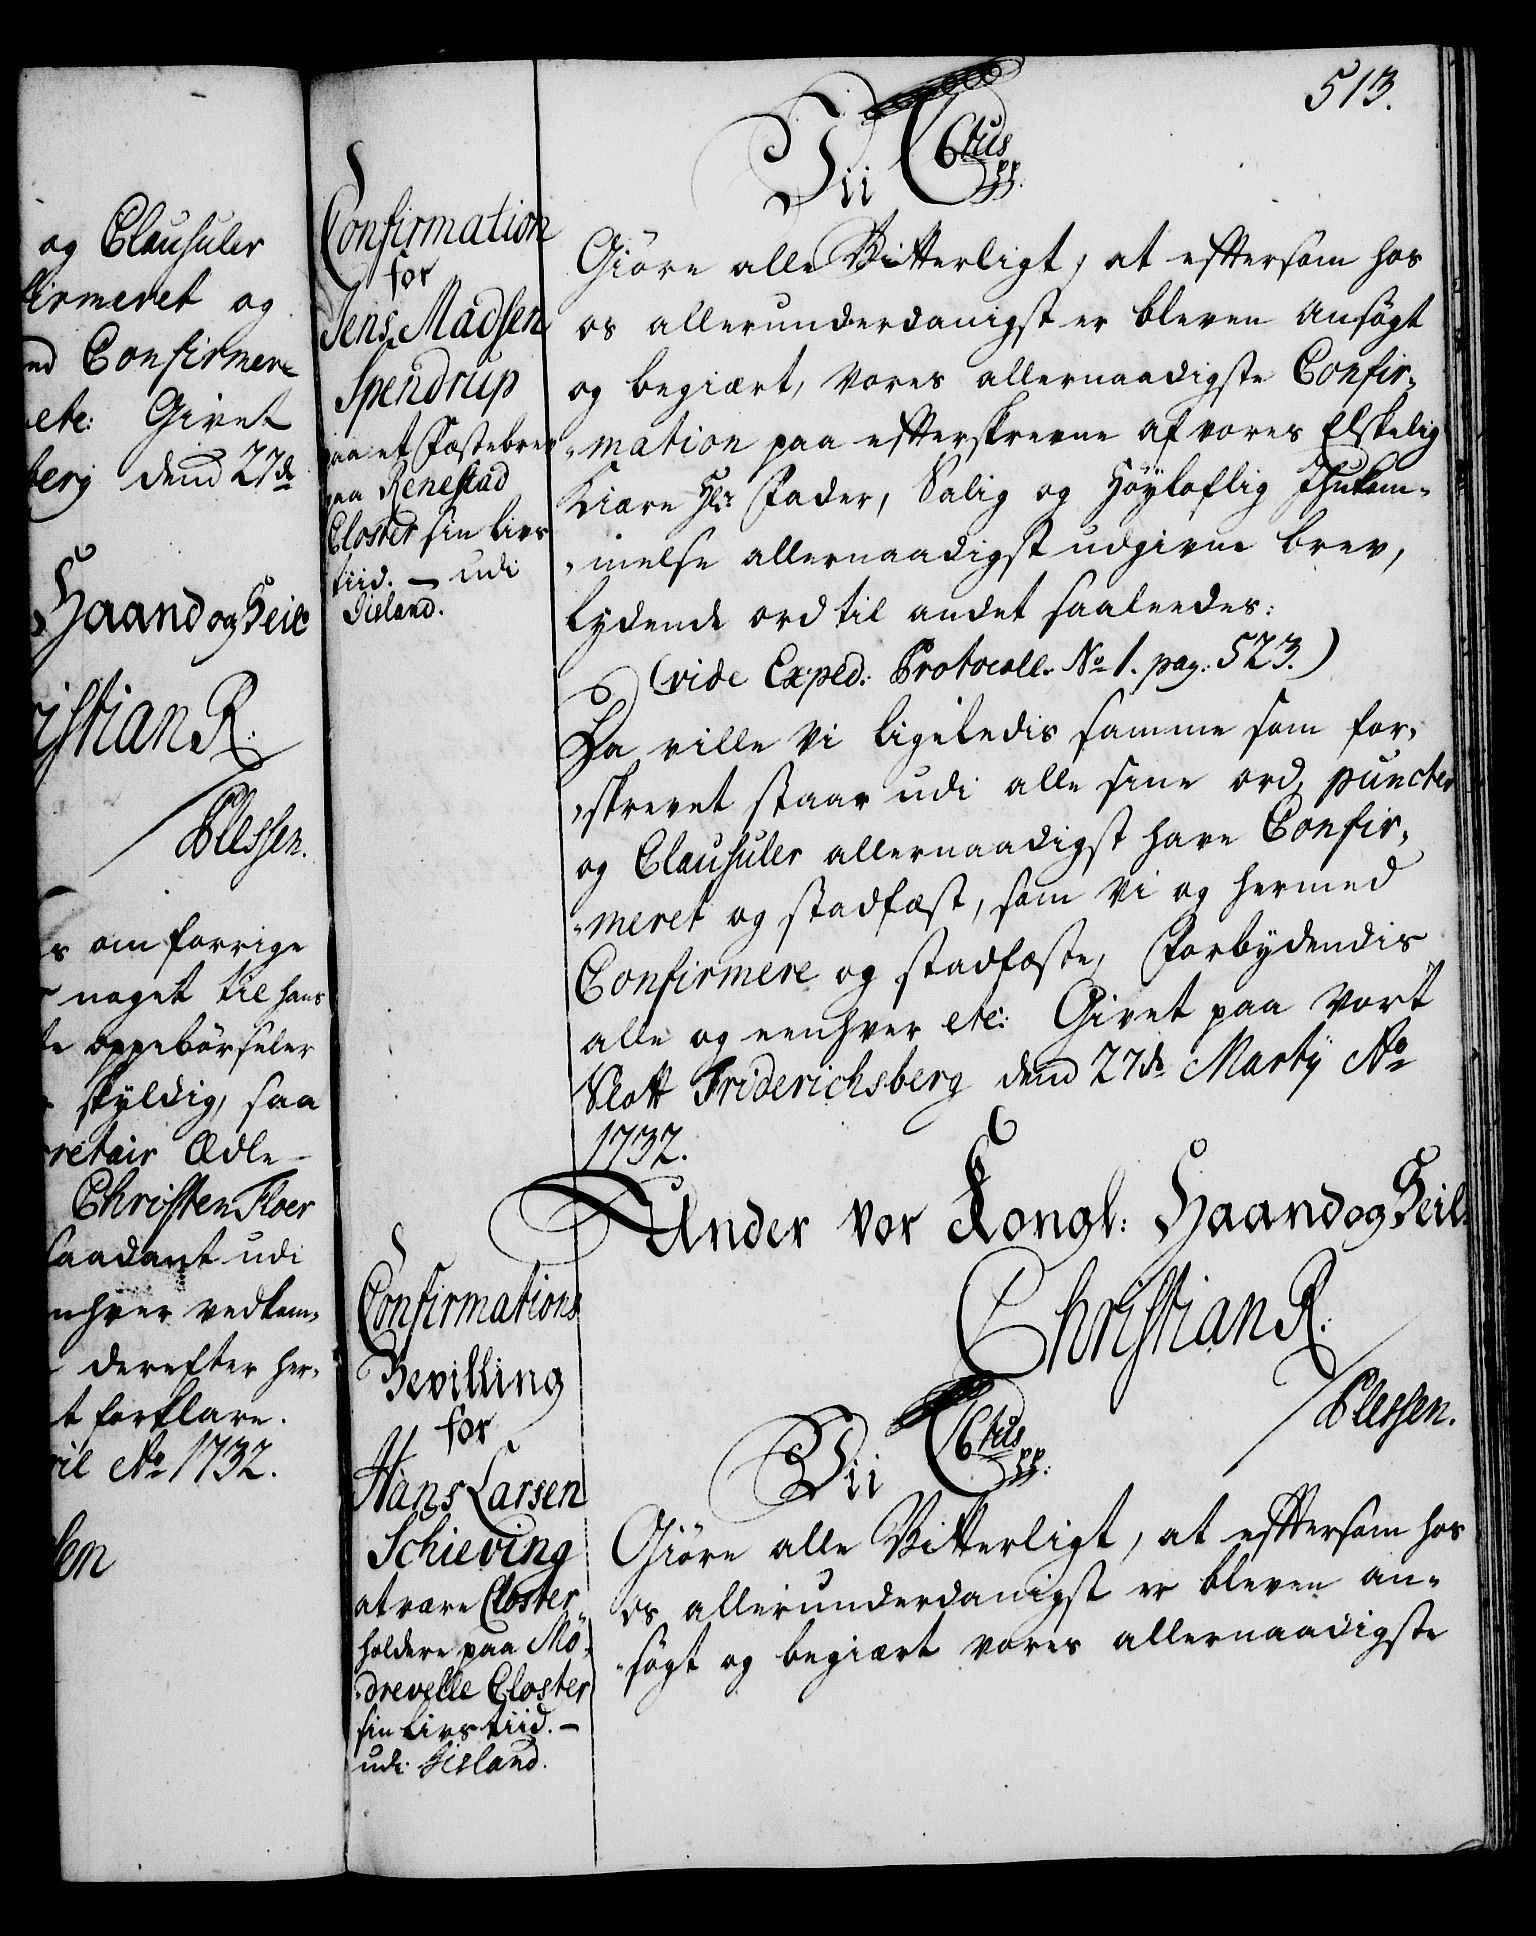 og Clausuler
firmeret og
Confirmere
etc: Givet
berg dend 27de
Haand og Seil
Christian R.
Plessen.
om forrige
noget til hans
oppebørseler
skyldig, saa
Ædle
Christen Floer
saadant udi
vedkom-
derefter her-
forklare.
Ao 1732.
513.
Confirmation
for
Jens Madsen
Spendrup
paa et Fæstebrev
paa Renestad
Closter sin livs
tiid. — udi
Iisland.
Vii C 6tus pp:
Giøre alle Vitterligt, at eftersom hos
os allerunderdanigst er bleven ansøgt
og begiært, vores allernaadigste Confir-
-mation paa efterskrevne af vores Elskelig
Kiære Hr: Fader, Salig og Høyloflig Ihukom-
-melse allernaadigst udgivne brev,
lydende ord til andet saaledes:
(vide Exped: Protocoll. No 1. pag: 523.)
Da ville Vi ligeledis samme som for-
-skrevet staar udi alle sine ord, puncter
og Clausuler allernaadigst have Confir-
-meret og stadfæst, som Vi og hermed
Confirmere og stadfæste, Forbydendis
alle og eenhver etc: Givet paa Vort
Slott Friderichsberg dend 27de Martij Ao
1732.
Under vor Kongl: Haand og Seil.
Christian R.
Plessen.
Confirmations
Bevilling
for
Hans Larsen
Schieving
at være Closter-
holdere paa Mö-
-drevelle Closter
sin livs tiid. —
udi Iisland.
Vii C 6tus pp:
Giøre alle Vitterligt, at eftersom hos
os allerunderdanigst er bleven an-
-søgt og begiært vores allernaadigste